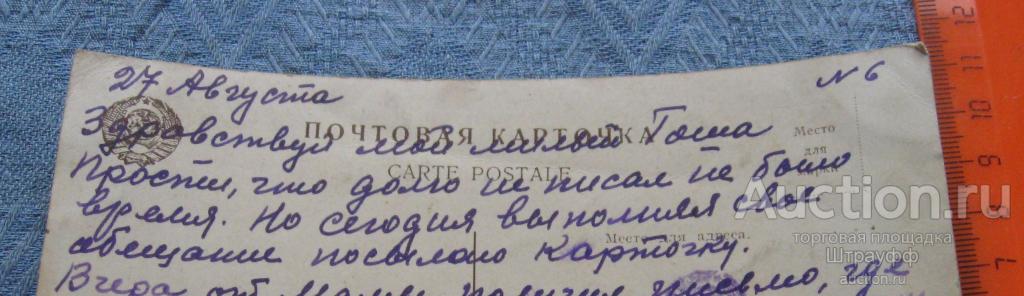 27 Августа № 6
Здравствуй мой милый Гоша
ПОЧТОВАЯ КАРТОЧКА
Место
для
марки
CARTE POSTALE
Прости, что долго не писал не было
время. Но сегодня выполнял свое
обещание посылаю карточку.
Место для адреса.
Вчера от Мамы получил письмо, где
Auction.ru
торговая площадка
Штрауфф
auction.ru
12
11
10
9
8
7